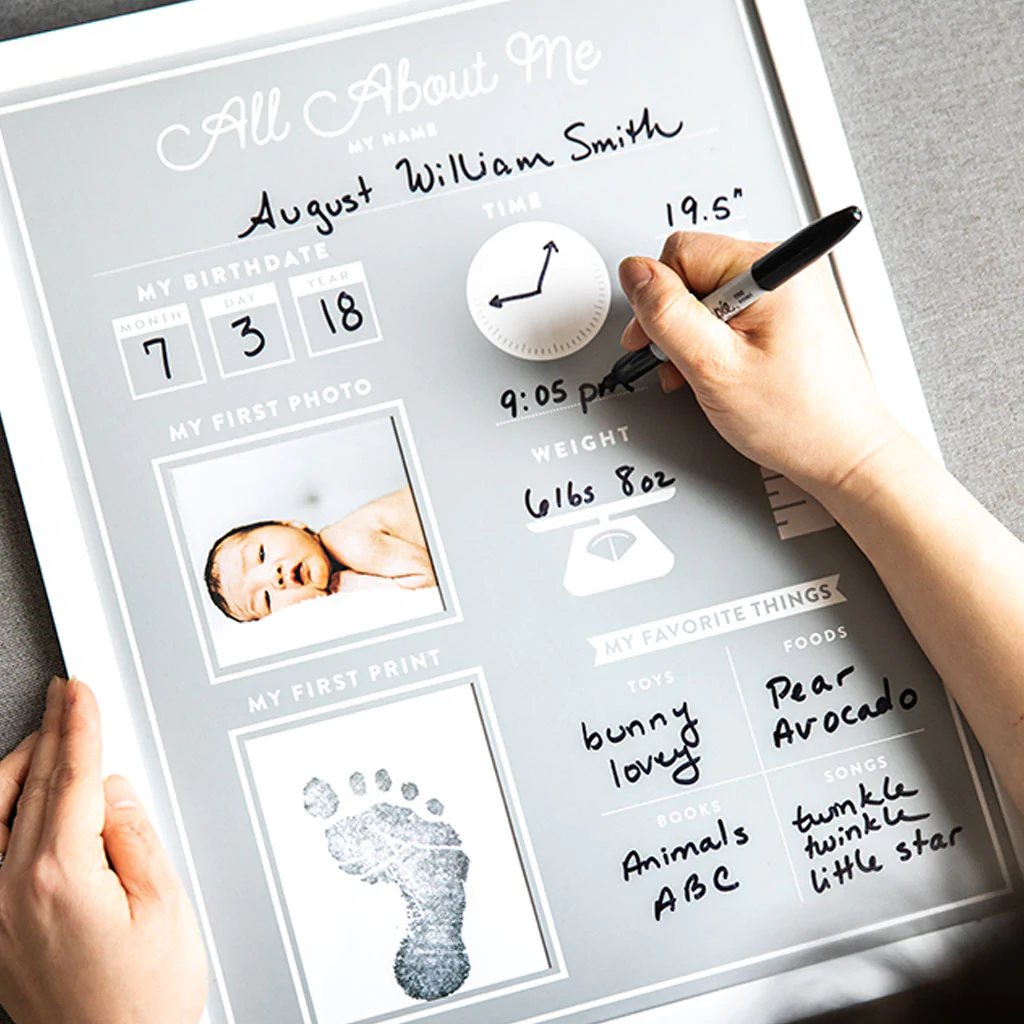 All About Me
MY NAME
August William Smith
MY BIRTHDATE
MONTH
DAY
YEAR
7
3
18
TIME
9:05 pm
19.5"
MY FIRST PHOTO
WEIGHT
6lbs 8oz
MY FIRST PRINT
MY FAVORITE THINGS
TOYS
bunny
lovey
FOODS
Pear
Avocado
BOOKS
Animals
ABC
SONGS
twinkle
twinkle
little star